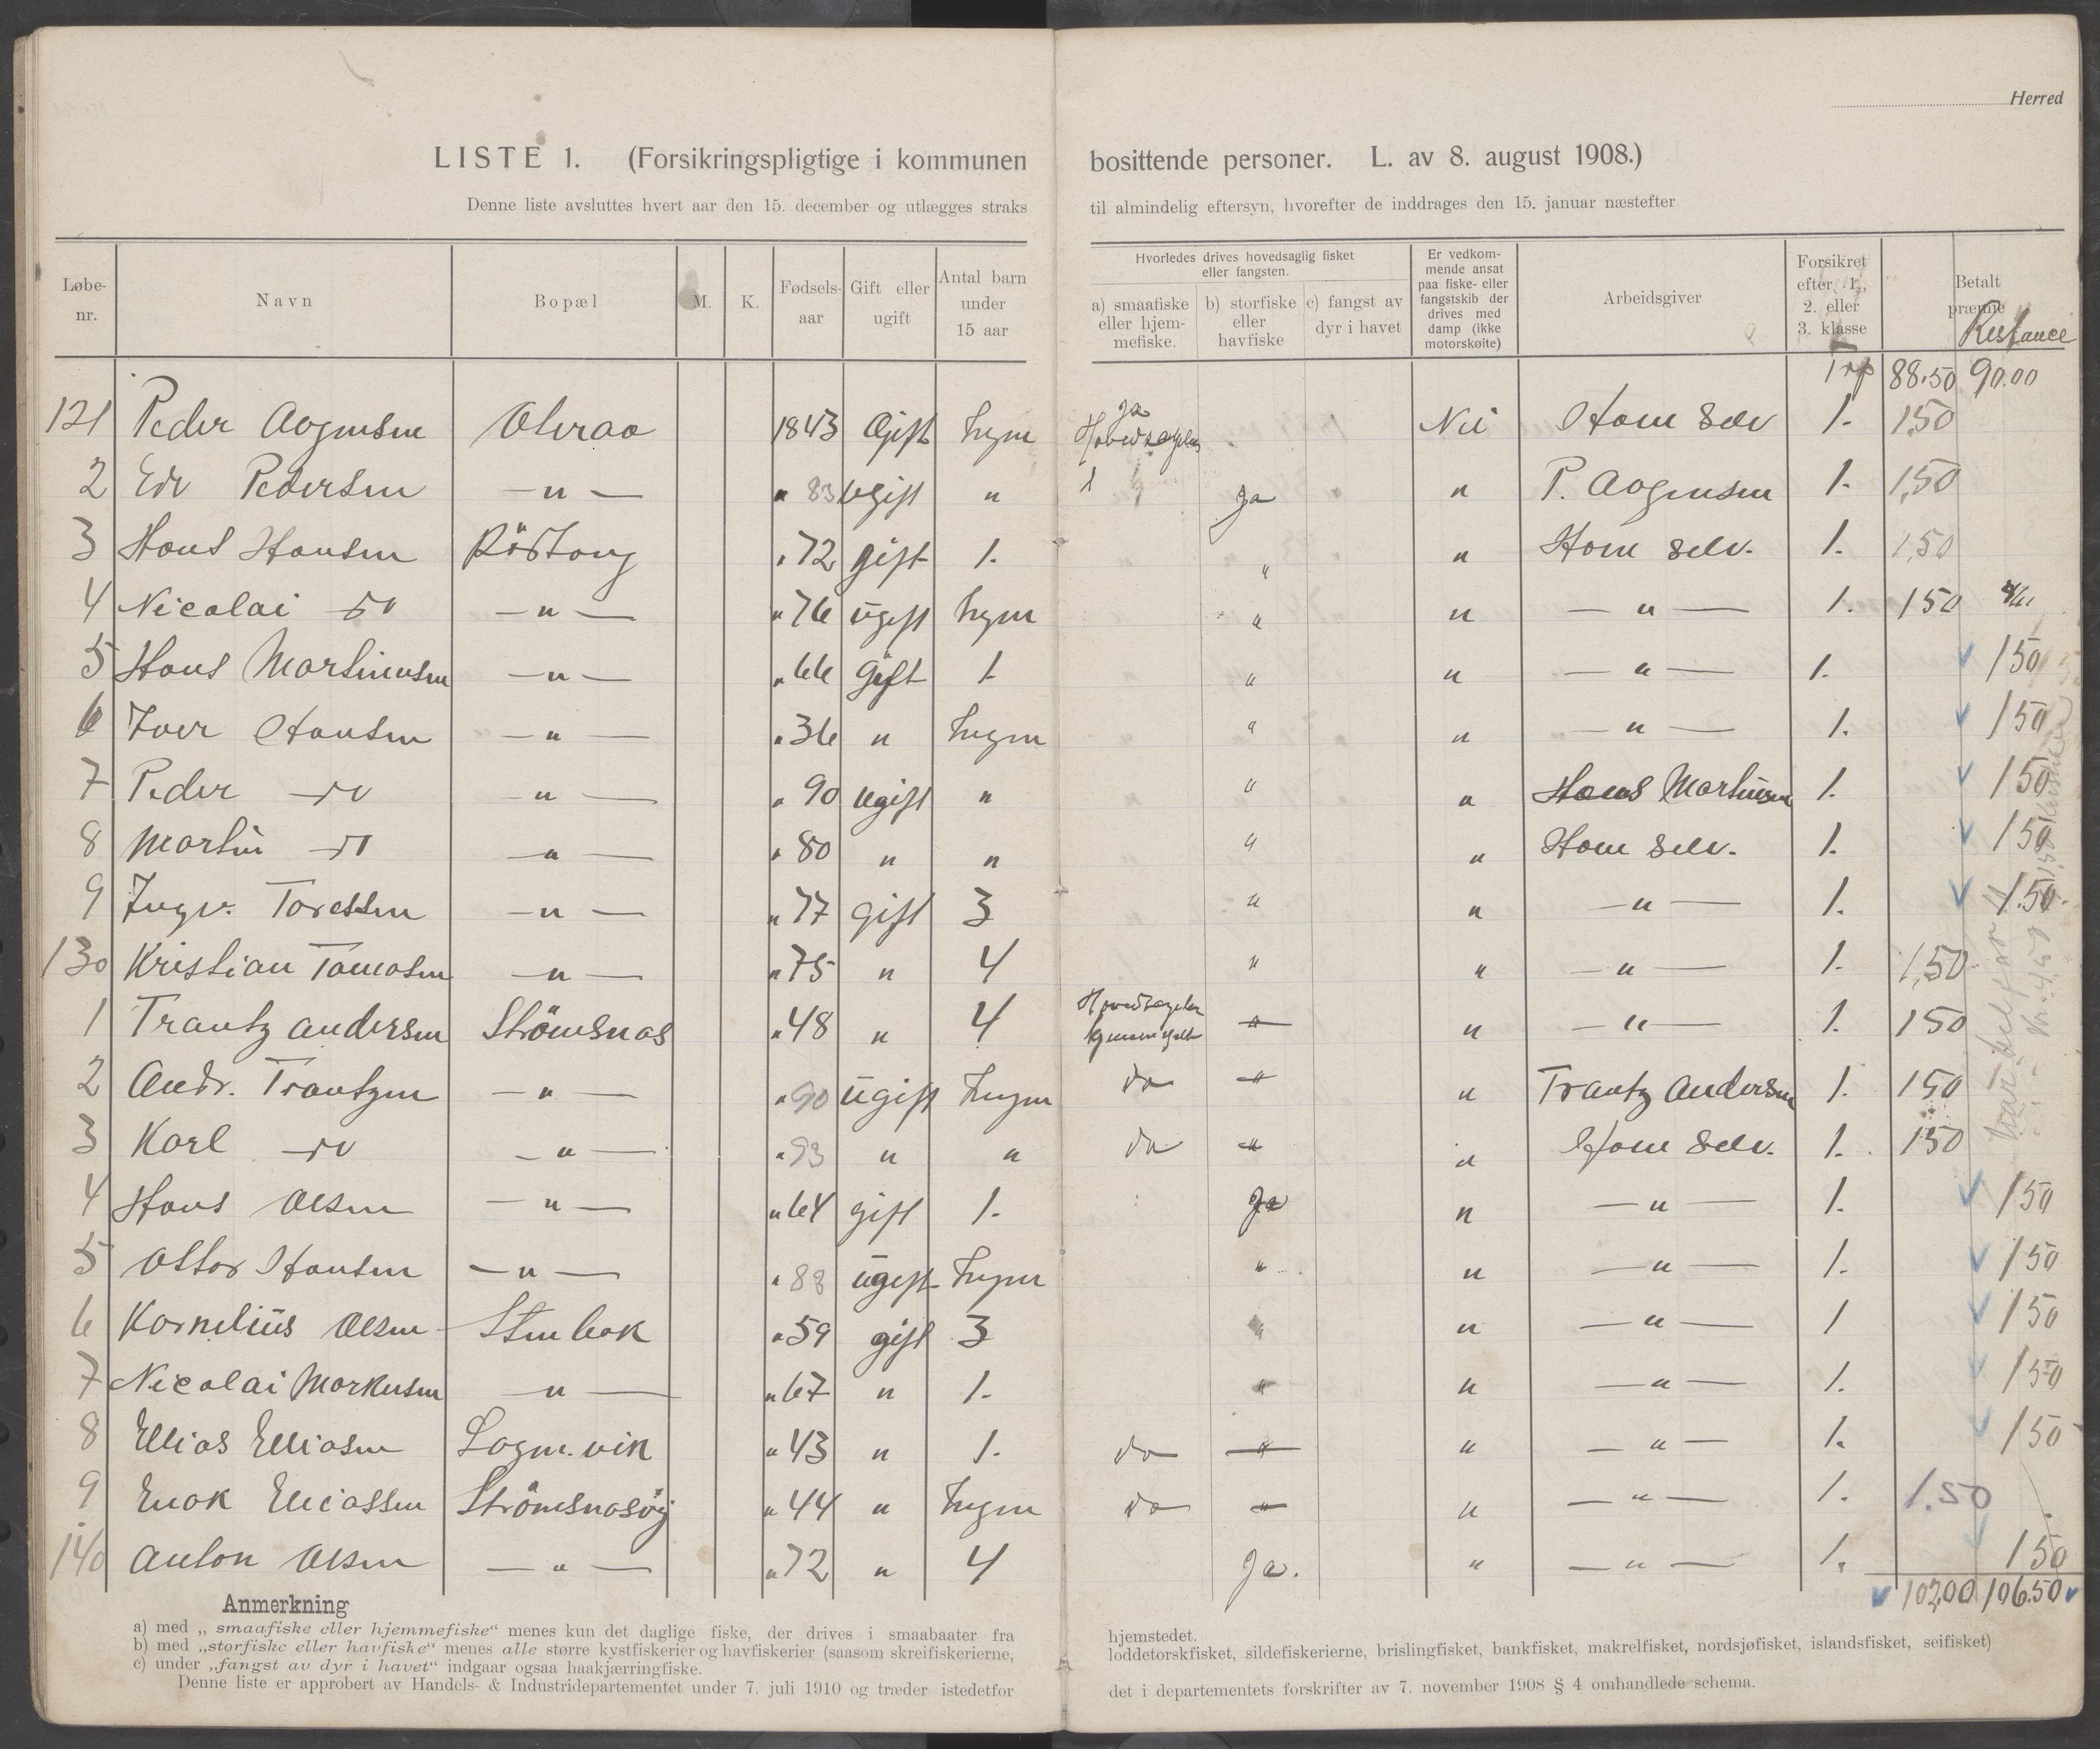 Herred
LISTE 1. (Forsikringspligtige i kommunen bosittende personer. L. av 8. august 1908.)
Denne liste avsluttes hvert aar den 15. december og utlægges straks til almindelig eftersyn, hvorefter de inddrages den 15. januar næstefter
Løbe-nr. Navn Bopæl M. K. Fødsels-aar Gift eller ugift Antal barn under 15 aar Hvorledes drives hovedsaglig fisket eller fangsten. a) smaafiske eller hjem-mefiske. b) storfiske eller havfiske c) fangst av dyr i havet Er vedkom-mende ansat paa fiske- eller fangstskib der drives med damp (ikke motorskøite) Arbeidsgiver Forsikret efter 1., 2. eller 3. klasse Betalt præmie Restance
88.50 90.00
121 Peder Aogensen 1843 Gift Ingen Ja Hovedsagelig Nei Ham selv 1. 1,50
2 Edv Pedersen — " — " 83 ugift " Ja " P. Aogensen 1. 1,50
3 Hans Hansen " 72 gift 1. " " Ham selv. 1. 1,50
4 Nicolai do — " — " 76 ugift Ingen " " — " — 1. 150
5 Hans Martinusen — " — " 66 gift 1 " " — " — 1. 150
6 Iver Hansen — " — " 36 " Ingen " " — " — 1. 150
7 Peder do — " — " 90 ugift " " " Hans Martinusen 1. 150
8 Martin do — " — " 80 " " " " Ham selv. 1. 150
9 Ingv. Toressen — " — " 77 gift 3 " " — " — 1. 1.50
130 Kristian Tomasen — " — " 75 " 4 " " — " — 1. 1,50
1 Trantz Andersen Strömsnas " 48 " 4 Hovedsagelig " " — " — 1. 150
2 Andr. Trantzen — " — " 90 ugift Ingen do " " Trantz Andersen 1. 150
3 Karl do — " — " 93 " " do " " Ham selv. 1. 150
4 Hans Olsen — " — " 64 gift 1. Ja " — " — 1. 150
5 Ottar Hansen — " — " 88 ugift Ingen " " — " — 1. 150
6 Kornelius Olsen Stenbak " 59 gift 3 " " — " — 1 150
7 Nicolai Markusen — " — " 67 " 1. " " — " — 1. 150
8 Ellias Elliasen Logm.vik " 43 " 1. do " " — " — 1. 150
9 Enok Eliassen Strömsnasöy " 44 " Ingen do " " — " — 1. 1.50
140 Anton Olsen — " — " 72 " 4 Ja. " — " — 1. 150
102,00 106.50
Anmerkning
a) med „smaafiske eller hjemmefiske“ menes kun det daglige fiske, der drives i smaabaater fra hjemstedet.
b) med „storfiske eller havfiske“ menes alle større kystfiskerier og havfiskerier (saasom skreifiskerierne, loddetorskfisket, sildefiskerierne, brislingfisket, bankfisket, makrelfisket, nordsjøfisket, islandsfisket, seifisket)
c) under „fangst av dyr i havet“ indgaar ogsaa haakjærringfiske.
Denne liste er approbert av Handels- & Industridepartementet under 7. juli 1910 og træder istedetfor det i departementets forskrifter av 7. november 1908 § 4 omhandlede schema.